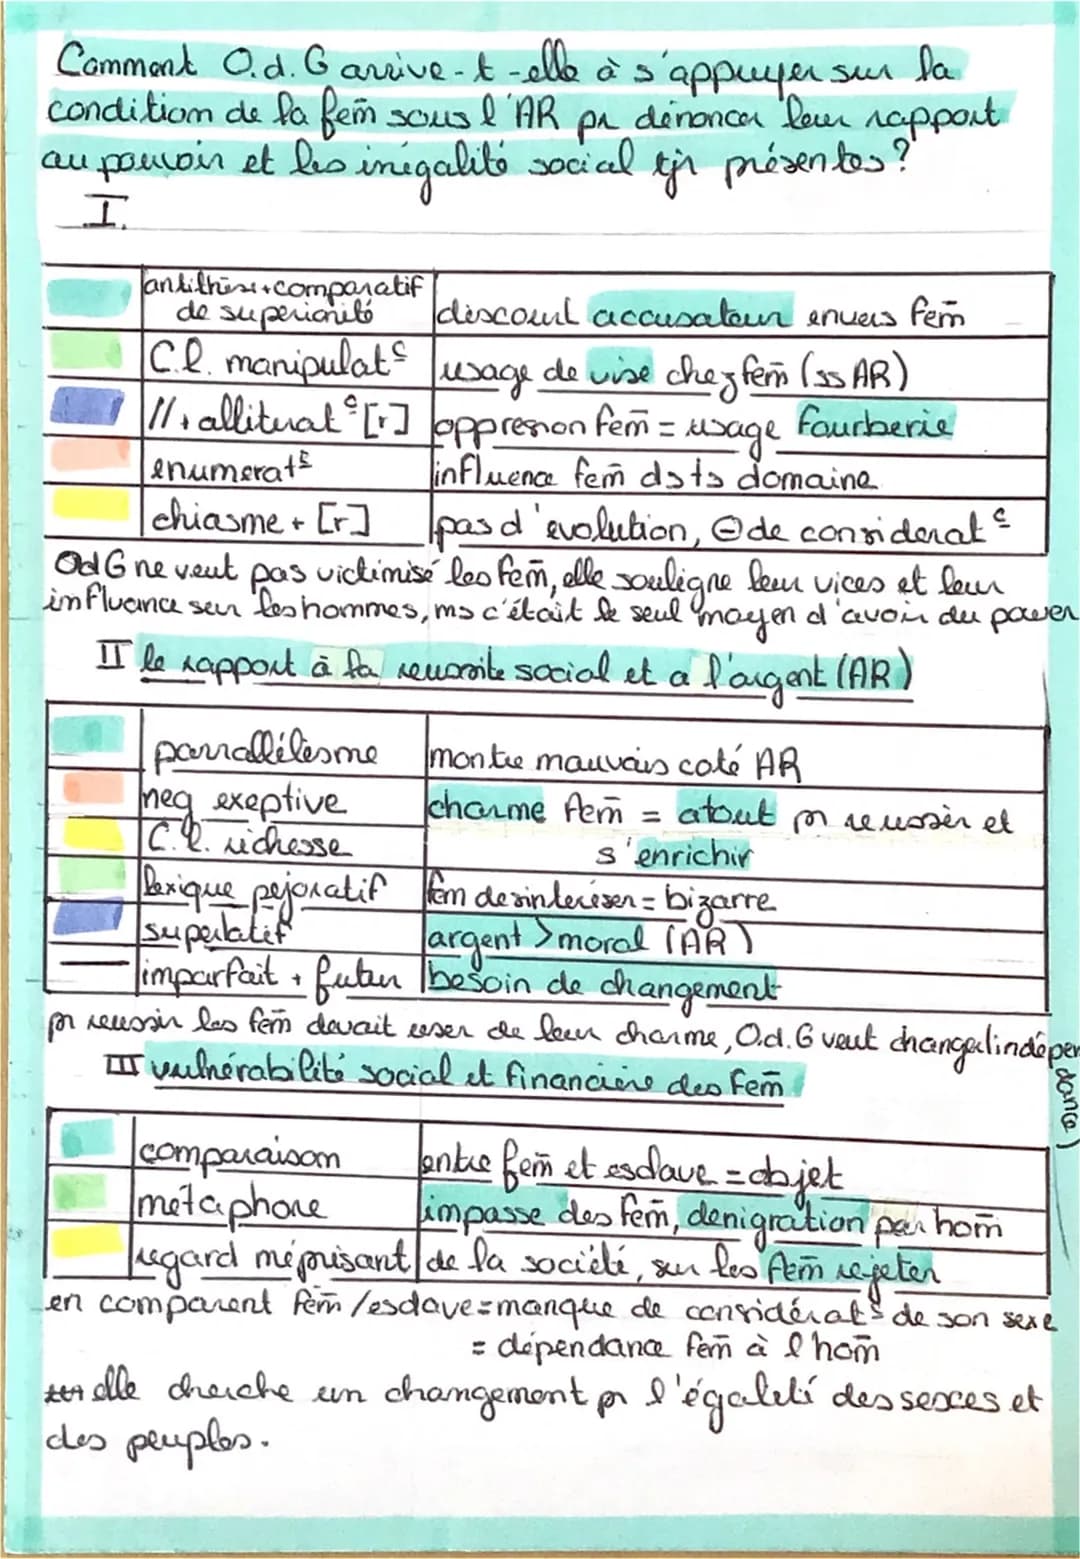 Comment O.d.G arrive-t-elle à s'appuyer sur la
condition de la fem̄ sous l'AR pr dénoncer leur rapport
au pouvoir et les inégalité social tjr présentes?
I.
antithèse+comparatif
de superiorité
discourt accusateur envers fem̄
C.l. manipulat°
usage de vise chez fem̄ (ss AR)
//+alliterat° [r]
oppression fem̄ = usage fourberie
enumerat°
influence fem̄ ds ts domaine
chiasme + [r]
pas d'evolution, ⊖ de considerat°
OdG ne veut pas victimisé les fem̄, elle souligne leur vices et leur
influence sur les hommes, ms c'était le seul moyen d'avoir du power
II le rapport à la reussite social et a l'argent (AR)
parrallélesme
montre mauvais coté AR
neg exeptive
charme fem̄ = atout pr reussir et
s'enrichir
C.l. richesse
lexique pejoratif
fem desinteresser = bizarre
superlatif
argent > moral (AR)
imparfait + futur
besoin de changement
pr reussir les fem̄ devait user de leur charme, O.d.G veut changer(indépen
dance)
III vulnérabilité social et financière des fem̄
comparaison
entre fem̄ et esclave = objet
métaphore
impasse des fem̄, denigration par hom̄
regard méprisant
de la société, sur les fem̄ rejeter
en comparent fem̄/esclave=manque de considérat° de son sexe
= dépendance fem̄ à l'hom̄
elle cherche un changement pr l'égalité des sexces et
des peuples.